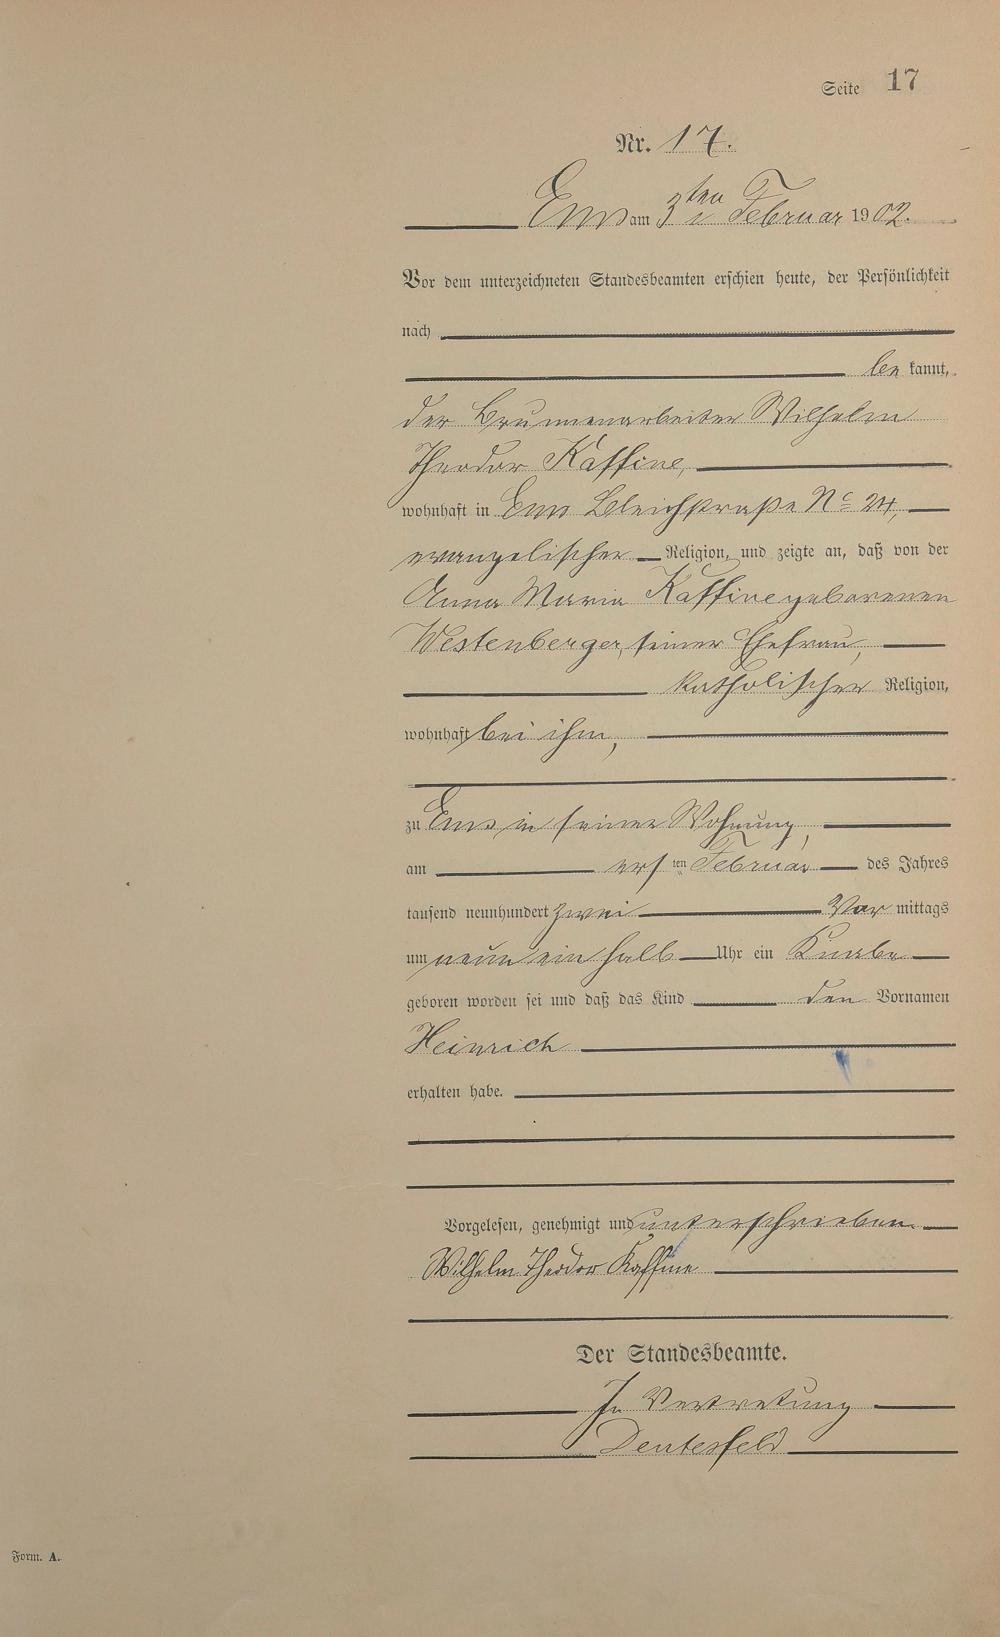 Seite 17
Nr. 17.
Ems am 3ten Februar 1902.
Vor dem unterzeichneten Standesbeamten erschien heute, der Persönlichkeit
nach
be kannt,
der Brunnenarbeiter Wilhelm
Theodor Kaffine,
wohnhaft in Ems Bleichstraße No 24,
evangelischer Religion, und zeigte an, daß von der
Anna Maria Kaffine geborenen
Westenberger, seiner Ehefrau,
katholischer Religion,
wohnhaft bei ihm,
zu Ems in seiner Wohnung,
am ersten Februar des Jahres
tausend neunhundert zwei Vor mittags
um neun ein halb Uhr ein Knabe
geboren worden sei und daß das Kind den Vornamen
Heinrich
erhalten habe.
Vorgelesen, genehmigt und unterschrieben.
Wilhelm Theodor Kaffine
Der Standesbeamte.
In Vertretung
Deutesfeld
Form. A.